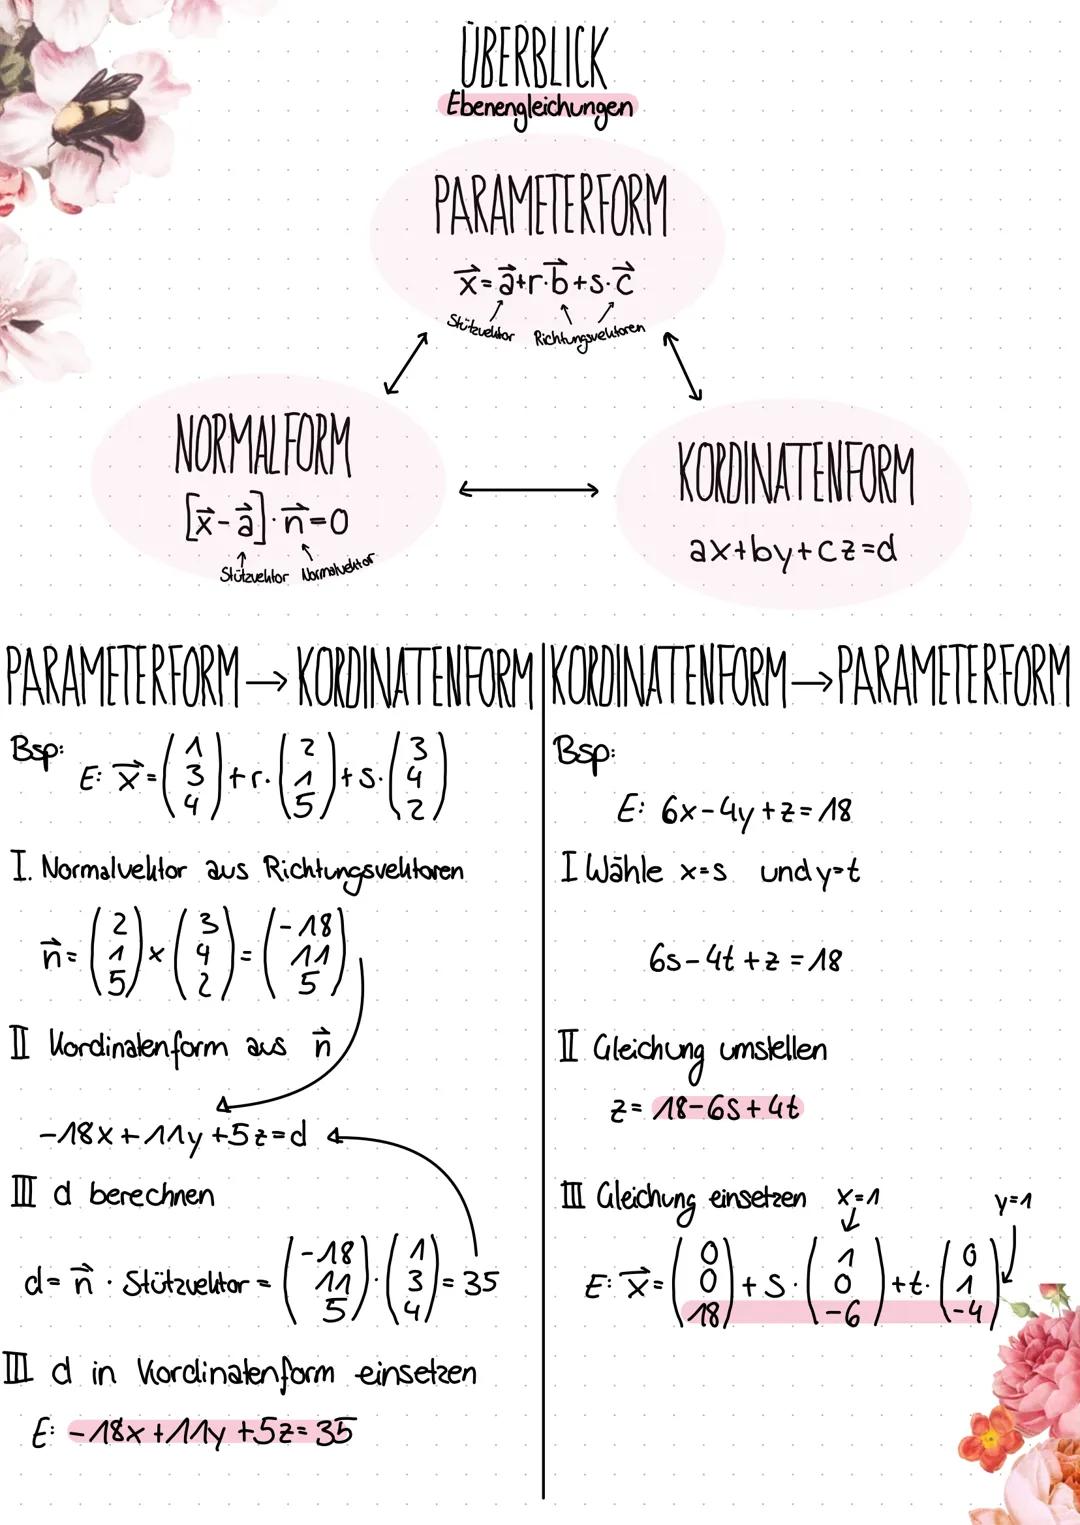 ÜBERBLICK
Ebenengleichungen
PARAMETERFORM
x⃗ = a⃗+r·b⃗+s·c⃗
Stützvektor Richtungsvektoren
NORMALFORM
[x⃗-a⃗]·n⃗=0
Stützvektor Normalvektor
KORDINATENFORM
ax+by+cz=d
PARAMETERFORM → KORDINATENFORM
Bsp:
E: x⃗ = (1 3 4) + r·(2 1 5) + s·(3 4 2)
I. Normalvektor aus Richtungsvektoren
n⃗ = (2 1 5) × (3 4 2) = (-18 11 5)
II Kordinatenform aus n⃗
-18x+11y+5z=d
III d berechnen
d = n⃗ · Stützvektor = (-18 11 5)·(1 3 4) = 35
III d in Kordinatenform einsetzen
E: -18x+11y+5z=35
KORDINATENFORM → PARAMETERFORM
Bsp:
E: 6x-4y+z=18
I Wähle x=s und y=t
6s-4t+z=18
II Gleichung umstellen
z= 18-6s+4t
III Gleichung einsetzen x=1 y=1
E: x⃗ = (0 0 18) + s·(1 0 -6) + t·(0 1 -4)